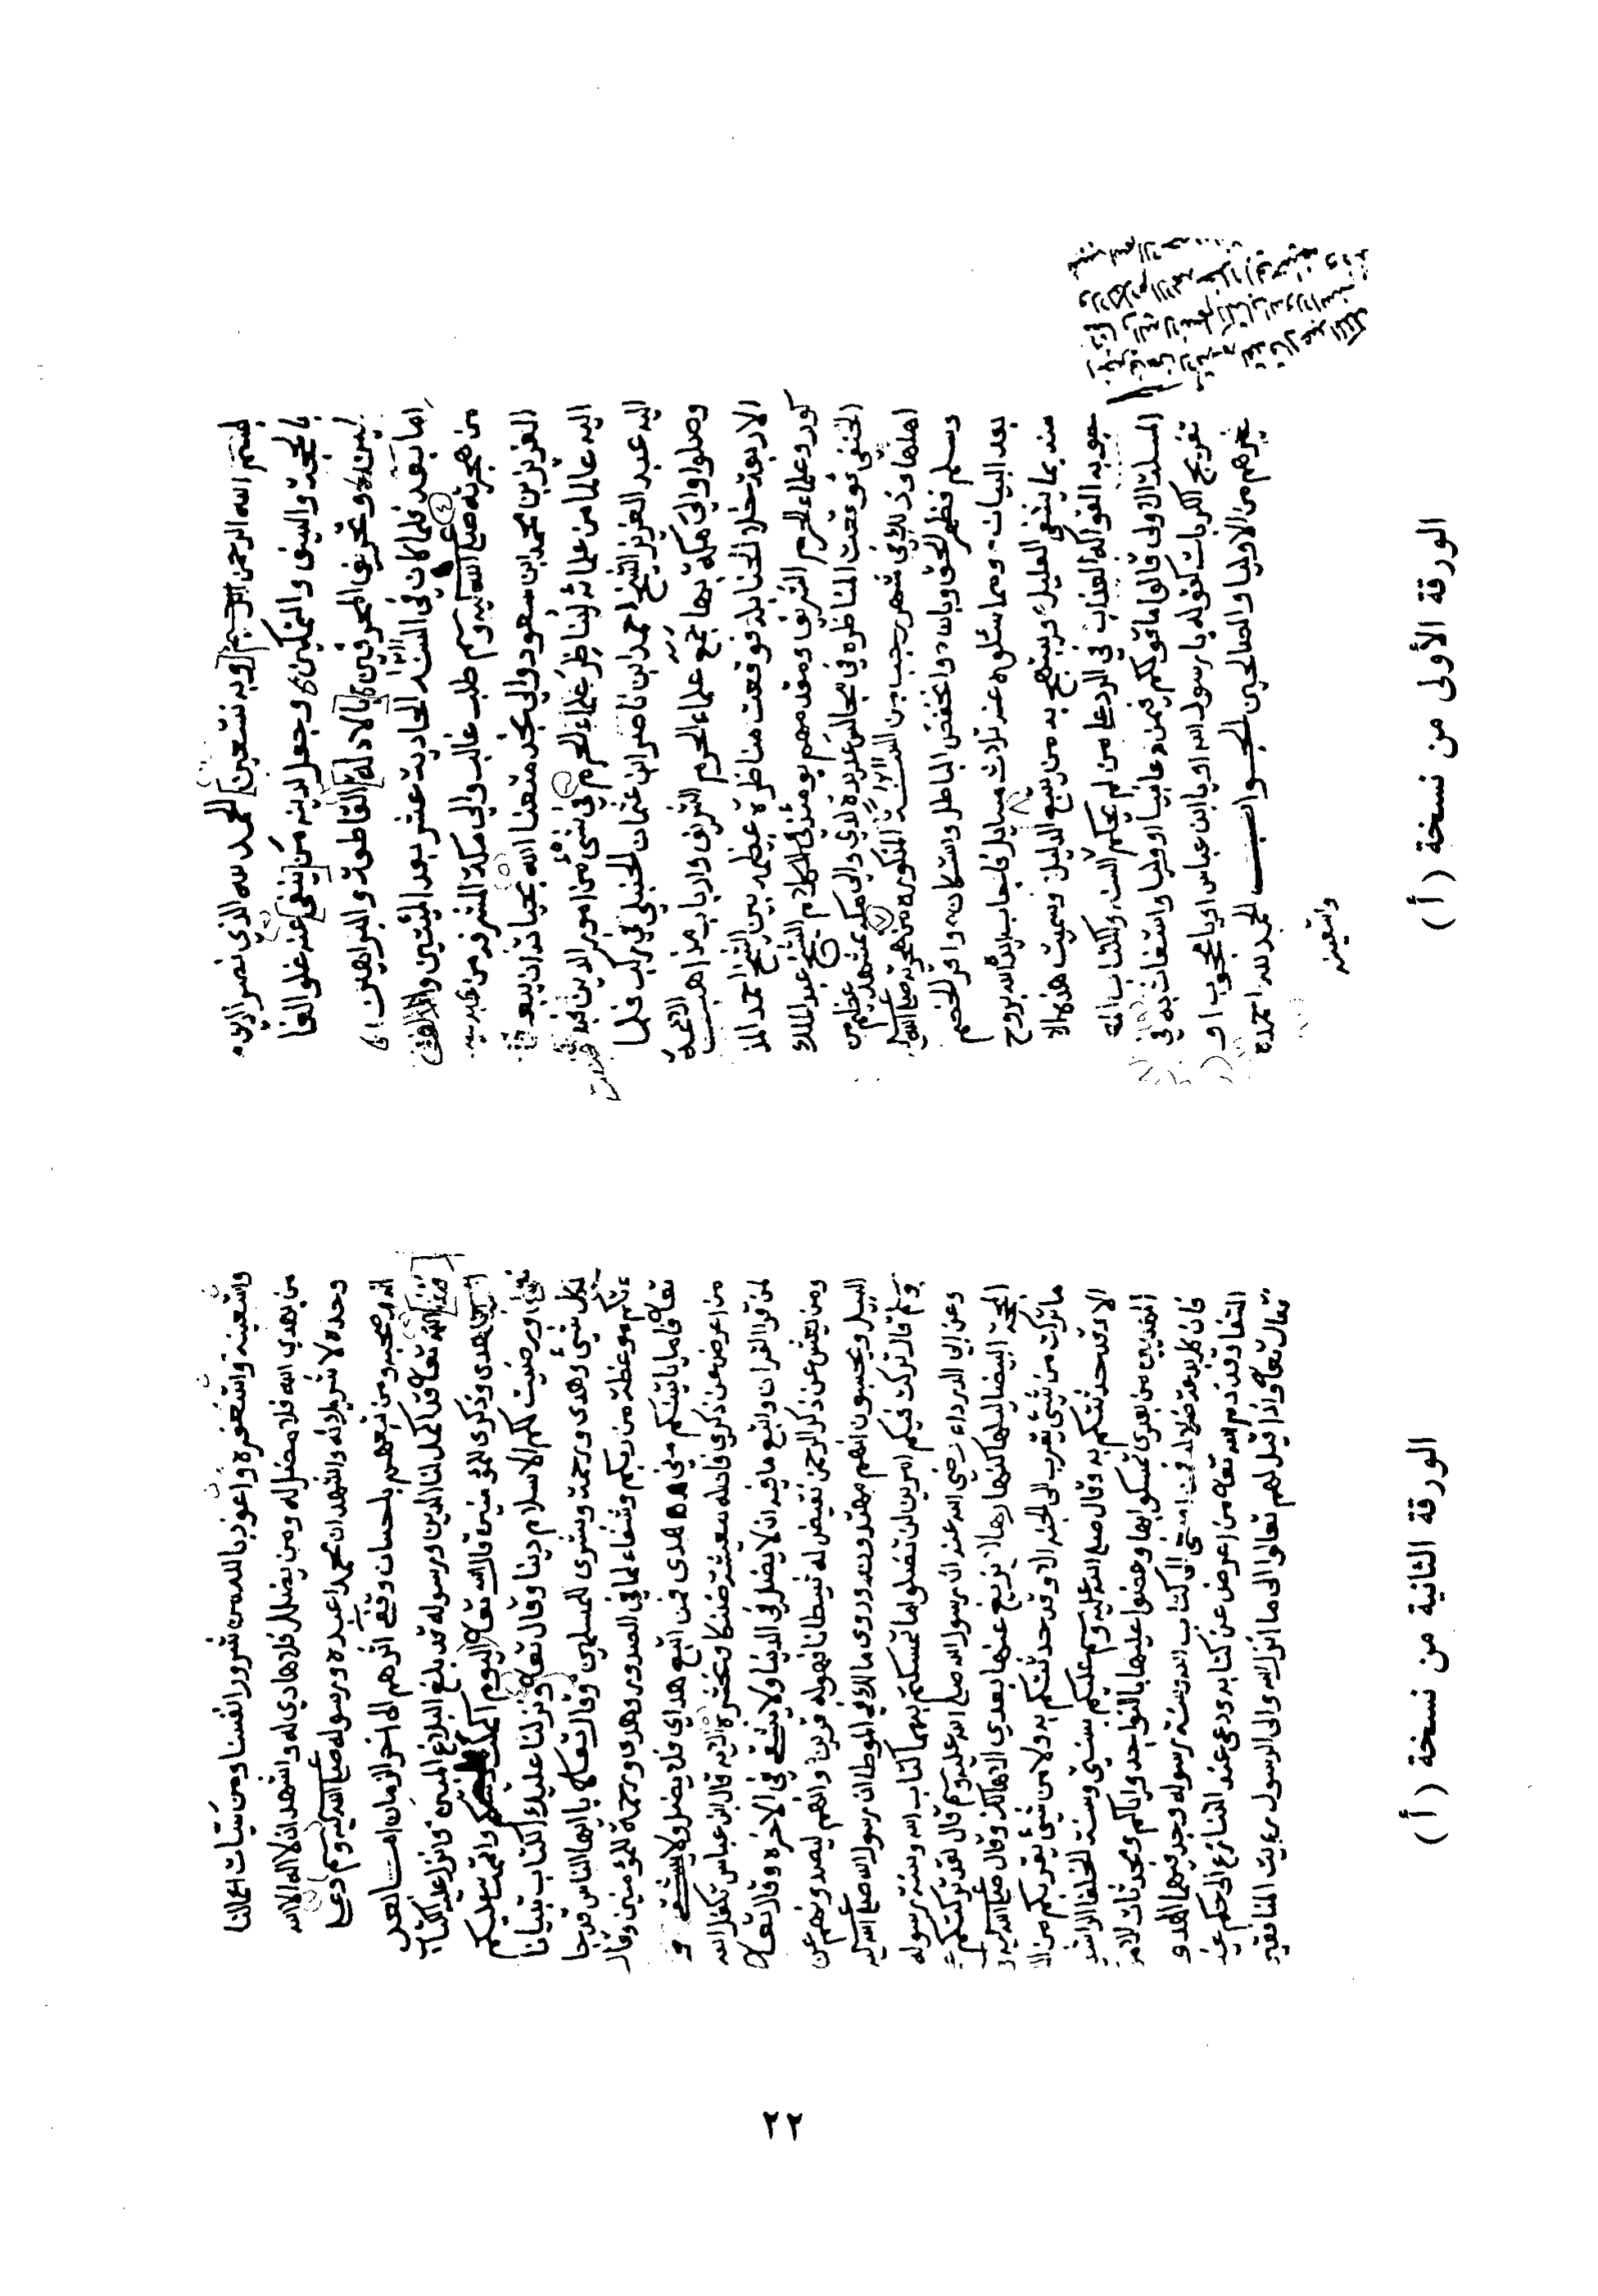 بسم الله الرحمن الرحيم وبه نستعين الحمد لله الذي نصر الدين
بالحجة والسيف والتمكين وجعل لدينه من ينفي عنه غلو الغا
لين وتحريف المحرفين بالادلة القاطعة والبراهين
اما بعد فلما كان في السنة الحادية عشر بعد المئتين والالف
من هجرته صلى الله عليه وسلم طلب غالب والي مكة المشرفة من عبد
العزيز بن محمد ابن سعود والي نجد متعنا الله بحياته ان يبعث
اليه عالما من علمائه ليناظر علماء الحرم في شيء من امور الدين
اليه عبد العزيز الشيخ احمد ابن ناصر ابن عثمان الحنبلي في ركب فلما
وصلوا والي مكة بها جمع علماء الحرم الشريف وارباب مذاهب الائمة
الاربعة خلا الحنابلة فوقعت مناظرة عظيمه بين الشيخ احمد المذ
كور وعلماء الحرم الشريف ومقدمهم يومئذ في الكلام الشيخ عبد الملك
الحنفي فوقعت المناظره في مجالس عديدة لدي والي مكه بمشهد عظيم من
اهلها وذلك في شهر رجب من السنة المذكوره من هجرته صلى الله عليه
وسلم فظهر الحق وبان وانخفض الباطل وستكان واقر الخصم
بعد البيان ومما سئلوه عنه ثلاث مسايل فاجاب ايده الله بروح
منه بما يشفي العليل ويبتهج به من يتبع الدليل وسميت هذه الا
جوبه الفواكه العذاب في الرد على من لم يحكم السنه والكتاب
المسئلة الاولى قالوا ما قولكم فيمن دعا نبيا او وليا واستغاث به في
تفريج الكربات كقوله يا رسول الله او يا ابن عباس او يا محجوب او
غيرهم من الاوليا والصالحين الجواب الحمد لله احمده
واستعينه
الورقة الأولى من نسخة ( أ )
واستعينه واستغفره واعوذ بالله من شرور انفسنا ومن سيئات اعمالنا
من يهدي الله فلا مضل له ومن يضلل فلا هادي له واشهد ان لا اله الا الله
وحده لا شريك له واشهد ان محمدا عبده ورسوله صلى الله عليه وسلم وعلى
اله وصحبه ومن تبعهم باحسان وقفى اثرهم الى اخر الزمان اما بعد
فان الله تعالى قد اكمل لنا الدين ورسوله قد بلغ البلاغ المبين فانزل عليه الكتاب
هدى وذكرى للمؤمنين قال الله تعالى اليوم اكملت لكم دينكم واتممت عليكم
نعمتي ورضيت لكم الاسلام دينا وقال تعالى ونزلنا عليك الكتاب تبيانا
لكل شيء وهدى ورحمة وبشرى للمسلمين وقال تعالى يا ايها الناس قد جا
ءتكم موعظة من ربكم وشفاء لما في الصدور وهدى ورحمة للمؤمنين وقال
تعالى فاما ياتينكم مني هدى فمن اتبع هداي فلا يضل ولا يشقى و
من اعرض عن ذكري فان له معيشة ضنكا ونحشره الايه قال ابن عباس تكفل الله
لمن قرا القران واتبع ما فيه ان لا يضل في الدنيا ولا يشقى في الاخرة وقال تعالى
ومن يعش عن ذكر الرحمن نقيض له شيطانا فهو له قرين وانهم ليصدونهم عن
السبيل ويحسبون انهم مهتدون وروى مالك في الموطا ان رسول الله صلى الله عليه
وسلم قال تركت فيكم امرين لن تضلوا ما تمسكتم بهما كتاب الله وسنة رسوله
وعن ابي الدرداء رضي الله عنه ان رسول الله صلى الله عليه وسلم قال لقد تركتكم على
المحجة البيضا ليلها كنهارها لا يزيغ عنها بعدي الا هالك وقال صلى الله عليه و
ما تركت من شيء يقربكم الى الجنة الا وقد حدثتكم به ولا من شيء يقربكم من النار
الا وقد حدثتكم به وقال صلى الله عليه وسلم عليكم بسنتي وسنة الخلفا الراشد
المهديين من بعدي تمسكوا بها وعضوا عليها بالنواجد واياكم ومحدثات الامور
فان كل بدعة ضلالة فمن اصغى الى كتاب الله وسنة رسوله وجد فيهما الهدى و
الشفا وقد ذم الله تعالى من اعرض عن كتابه ودعى عند التنازع الى حكم غيره
فقال تعالى واذا قيل لهم تعالوا الى ما انزل الله والى الرسول رايت المنافقين
الورقة الثانية من نسخة ( أ )
٢٢